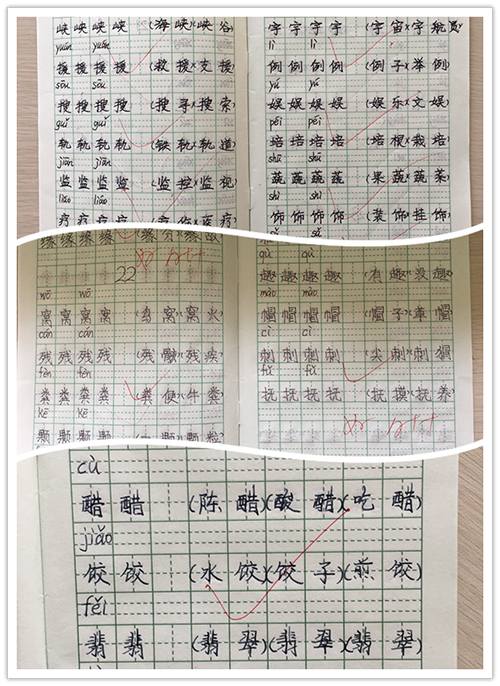 峡 峡 峡 峡 (海 峡)(峡 谷)
yuán yuán
援 援 援 援 (救 援)(支 援)
sōu sōu
搜 搜 搜 搜 (搜 寻)(搜 索)
guǐ guǐ
轨 轨 轨 轨 (铁 轨)(轨 道)
jiān jiān
监 监 监 监 (监 控)(监 视)
liáo liáo
疗 疗 疗 疗
宇 宇 宇 宇 (宇 宙)(宇 航 员)
lì lì
例 例 例 例 (例 子)(举 例)
yú yú
娱 娱 娱 娱 (娱 乐)(文 娱)
péi péi
培 培 培 培 (培 根)(栽 培)
shū shū
蔬 蔬 蔬 蔬 (果 蔬)(蔬 菜)
shì shì
饰 饰 饰 饰 (装 饰)(挂 饰)
22
wō wō
窝 窝 窝 窝 (鸟 窝)(窝 火)
cán cán
残 残 残 残 (残 酷)(残 疾)
fèn fèn
粪 粪 粪 粪 (粪 便)(牛 粪)
kē kē
颗 颗 颗 颗
qù qù
趣 趣 趣 趣 (有 趣)(没 趣)
mào mào
帽 帽 帽 帽 (帽 子)(草 帽)
cì cì
刺 刺 刺 刺 (尖 刺)(刺 猬)
fǔ fǔ
抚 抚 抚 抚 (抚 摸)(抚 养)
cù
醋 醋 (陈 醋)(酸 醋)(吃 醋)
jiǎo
饺 饺 (水 饺)(饺 子)(煎 饺)
fěi
翡 翡 (翡 翠)(翡 翠)(翡 翠)